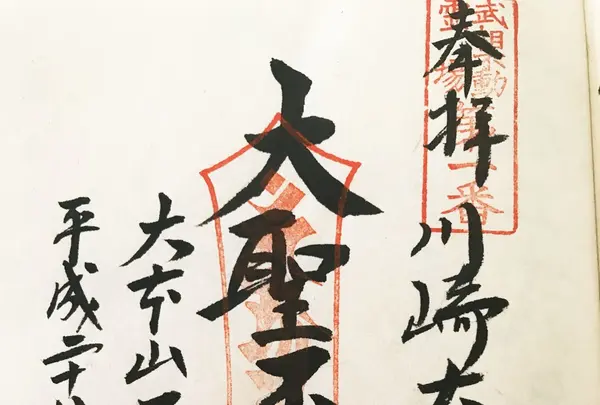 奉拝 川崎大
武相 動
霊場
第一番
大聖不
大本山
平成二十